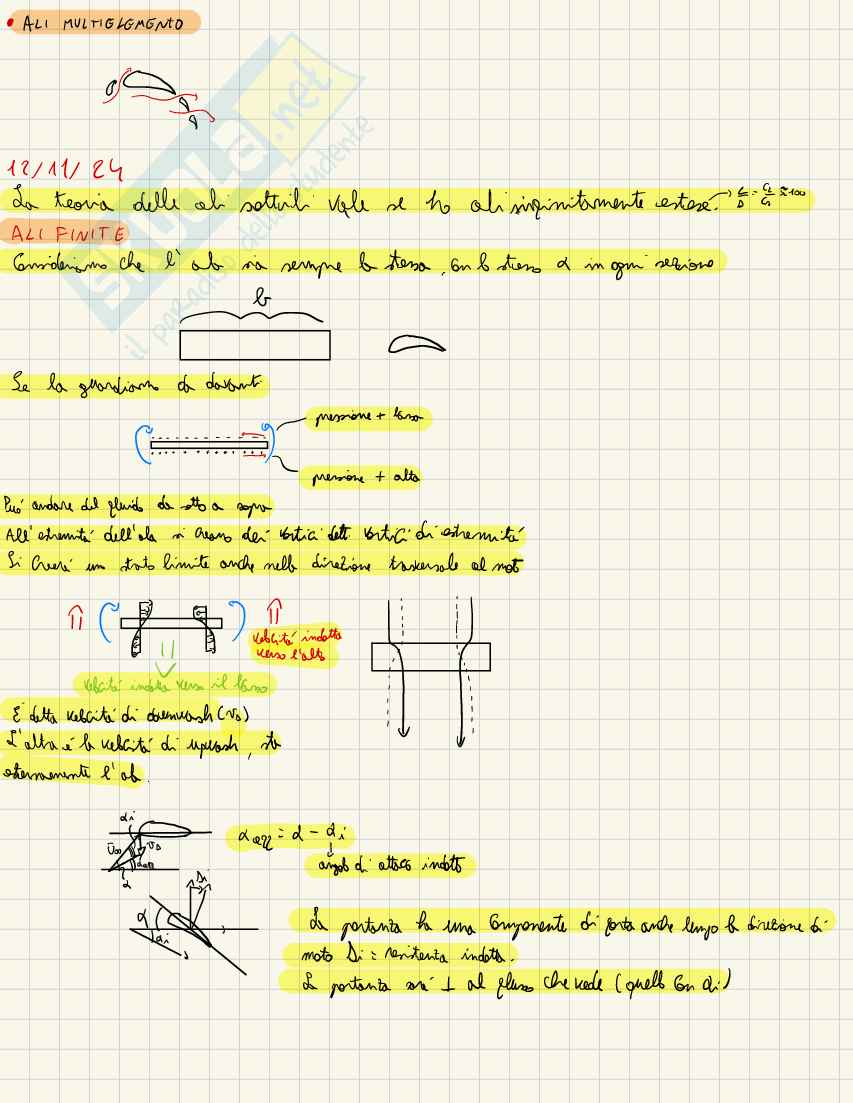 • ALI MULTIELEMENTO
12/11/24
La teoria delle ali sottili vale se ho ali infinitamente estese. → L/D = CL/CD ≈ 100
ALI FINITE
Consideriamo che l'ala sia sempre la stessa, con lo stesso α in ogni sezione
b
Se la guardiamo da davanti
pressione + bassa
pressione + alta
Può andare del fluido da sotto a sopra
All'estremità dell'ala si creano dei vortici detti vortici di estremità
Si creerà uno strato limite anche nella direzione trasversale al moto
velocità indotta
verso l'alto
velocità indotta verso il basso
È detta velocità di downwash (vD)
L'altra è la velocità di upwash, sta
esternamente l'ala.
αi
U∞
vD
αeff
α
αeff = α - αi
angolo di attacco indotto
Di
α
αi
La portanza ha una componente di forza anche lungo la direzione di
moto Di = resistenza indotta.
La portanza sarà ⊥ al flusso che vede (quello con αi)
SKUOLA.net
il paradiso dello studente